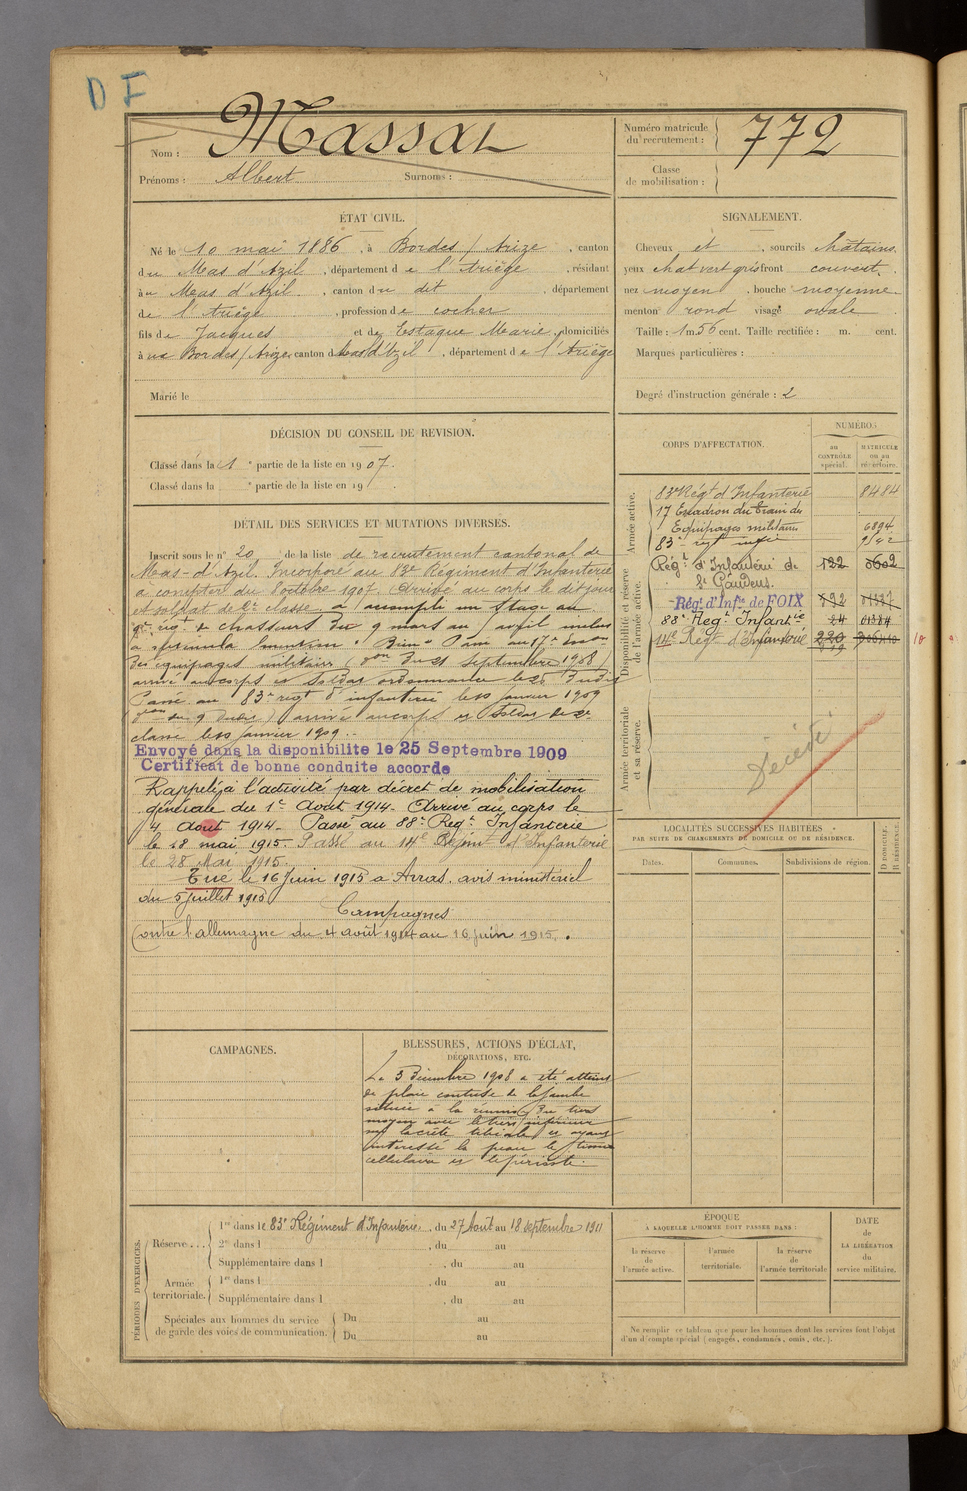 D F
Nom : Massat
Prénoms : Albert Surnoms :
Numéro matricule du recrutement : 772
Classe de mobilisation :
ÉTAT CIVIL.
Né le 10 mai 1886, à Bordes / Arize, canton
du Mas d'Azil, département de l'Ariège, résidant
à u Mas d'Azil, canton du dit, département
de l'Ariège, profession de cocher
fils de Jacques et de Lestaque Marie, domiciliés
à Bordes / Arize canton d Mas d'Azil, département de l'Ariège
Marié le
SIGNALEMENT.
Cheveux et , sourcils châtains
yeux chat vert gris front couvert,
nez moyen, bouche moyenne
menton rond visage ovale
Taille : 1 m 56 cent. Taille rectifiée : m. cent.
Marques particulières :
Degré d'instruction générale : 2
DÉCISION DU CONSEIL DE REVISION.
Classé dans la 1e partie de la liste en 1907.
Classé dans la e partie de la liste en 19
DÉTAIL DES SERVICES ET MUTATIONS DIVERSES.
Inscrit sous le n° 20 de la liste de recrutement cantonal de
Mas-d'Azil. Incorporé au 83e Régiment d'Infanterie
à compter du 8 octobre 1907. Arrivé au corps le dit jour
et soldat de 2e classe. a accompli un stage au
régt de chasseurs du 9 mars au 1 avril
mention "Bien" Passé au 17e
des équipages militaires (Don du 21 septembre 1908)
arrivé au corps et soldat ordonnance le 25
Passé au 83e régt d'infanterie le 10 janvier 1909
arrivé au corps et soldat de 2e
classe le 10 janvier 1909.
Envoyé dans la disponibilite le 25 Septembre 1909
Certificat de bonne conduite accorde
Rappelé à l'activité par décret de mobilisation
générale du 1er Août 1914. Arrivé au corps le
4 Août 1914. Passé au 88e Régt Infanterie
le 18 mai 1915. Passé au 14e Régint d'Infanterie
le 28 Mai 1915.
Tué le 16 Juin 1915 à Arras. avis ministériel
du 5 juillet 1915
Campagnes
Contre l'allemagne du 4 août 1914 au 16 juin 1915.
CORPS D'AFFECTATION.
NUMÉROS
au CONTRÔLE spécial.
MATRICULE ou au répertoire.
Armée active.
83e Régt d'Infanterie 8484
17 Escadron du train des
Equipages militaires 6894
83e regt infie
Disponibilité et réserve de l'armée active.
Régt d'Infanterie de St Gaudens. 122
Régt d'Infie de FOIX 792
88e Regt Infantie 24 01384
14e Régt d'Infanterie 220
Armée territoriale et sa réserve.
Décédé
LOCALITÉS SUCCESSIVES HABITÉES
PAR SUITE DE CHANGEMENTS DE DOMICILE OU DE RÉSIDENCE.
Dates. Communes. Subdivisions de région.
D DOMICILE.
R RÉSIDENCE.
CAMPAGNES.
BLESSURES, ACTIONS D'ÉCLAT,
DÉCORATIONS, ETC.
Le 3 Décembre 1908 a été atteint
de plaie contuse de la jambe
située à la réunion du tiers
moyen avec le tiers inférieur
sur la crête tibiale et ayant
intéressé la peau le tissu
cellulaire et le périoste.
PÉRIODES D'EXERCICES.
Réserve...
1re dans le 83e Régiment d'Infanterie, du 27 Août au 18 septembre 1911
2e dans l , du au
Supplémentaire dans l , du au
Armée territoriale.
1re dans l , du au
Supplémentaire dans l , du au
Spéciales aux hommes du service de garde des voies de communication.
Du au
Du au
ÉPOQUE
À LAQUELLE L'HOMME DOIT PASSER DANS :
la réserve de l'armée active.
l'armée territoriale.
la réserve de l'armée territoriale
DATE de LA LIBÉRATION du service militaire.
Ne remplir ce tableau que pour les hommes dont les services font l'objet
d'un décompte spécial (engagés, condamnés, omis, etc.).